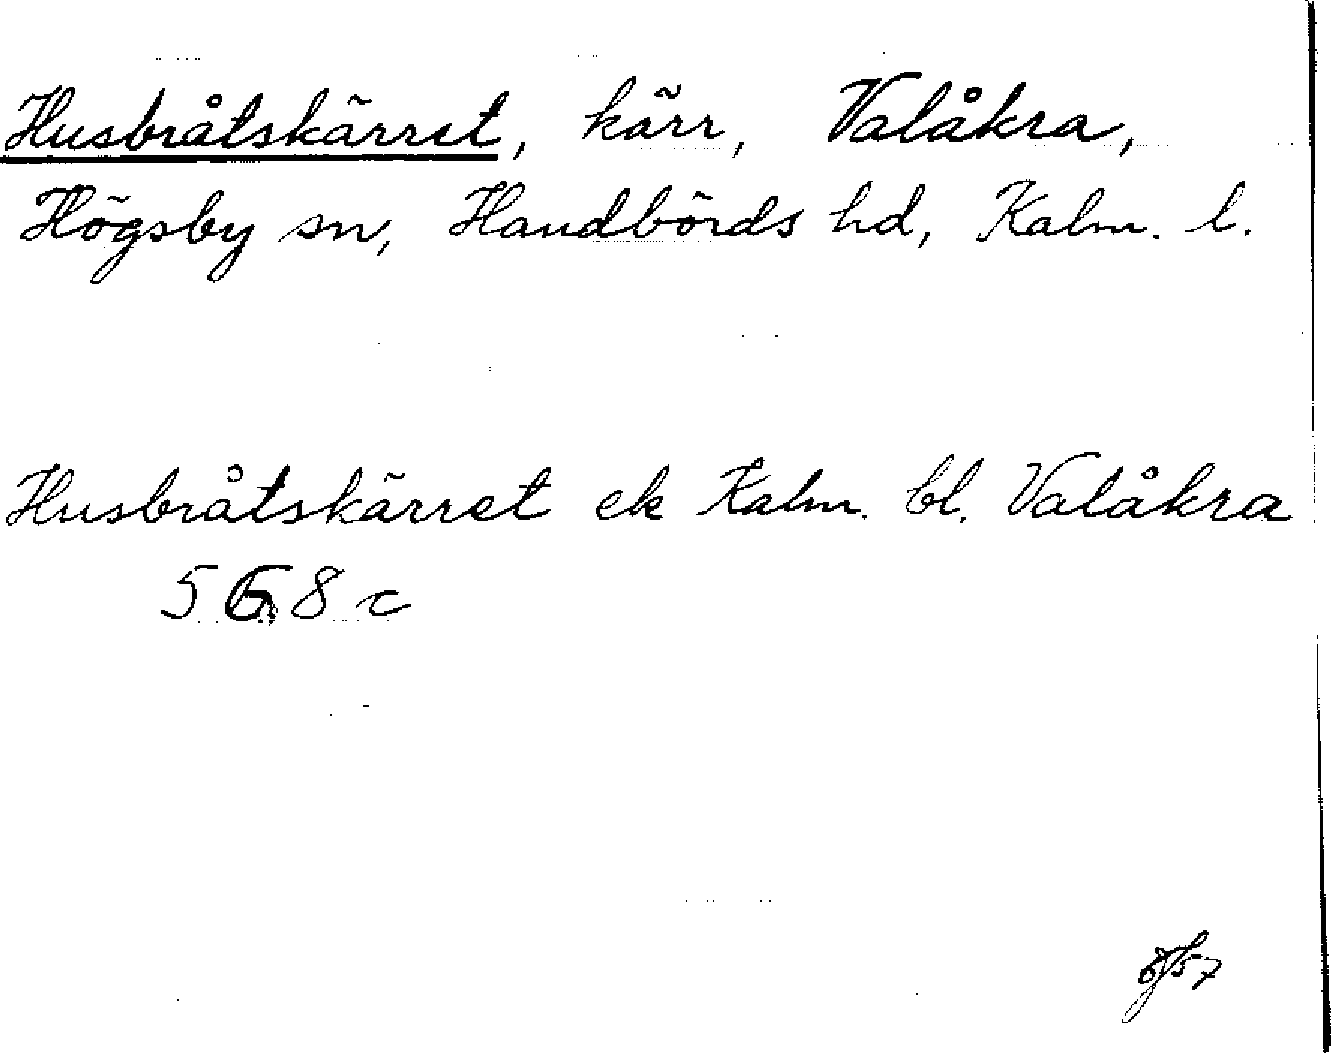 Husbråtskärret, kärr, Valåkra,
Högsby sn, Handbörds hd, Kalm. l.
Husbråtskärret ek Kalm. bl. Valåkra
5 G 8 c